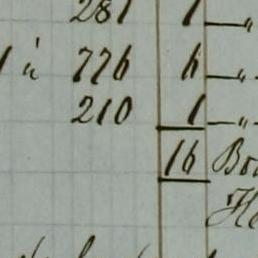 281 1 — "
1 à 776 6 — "
210 1 — "
16 Bo
He